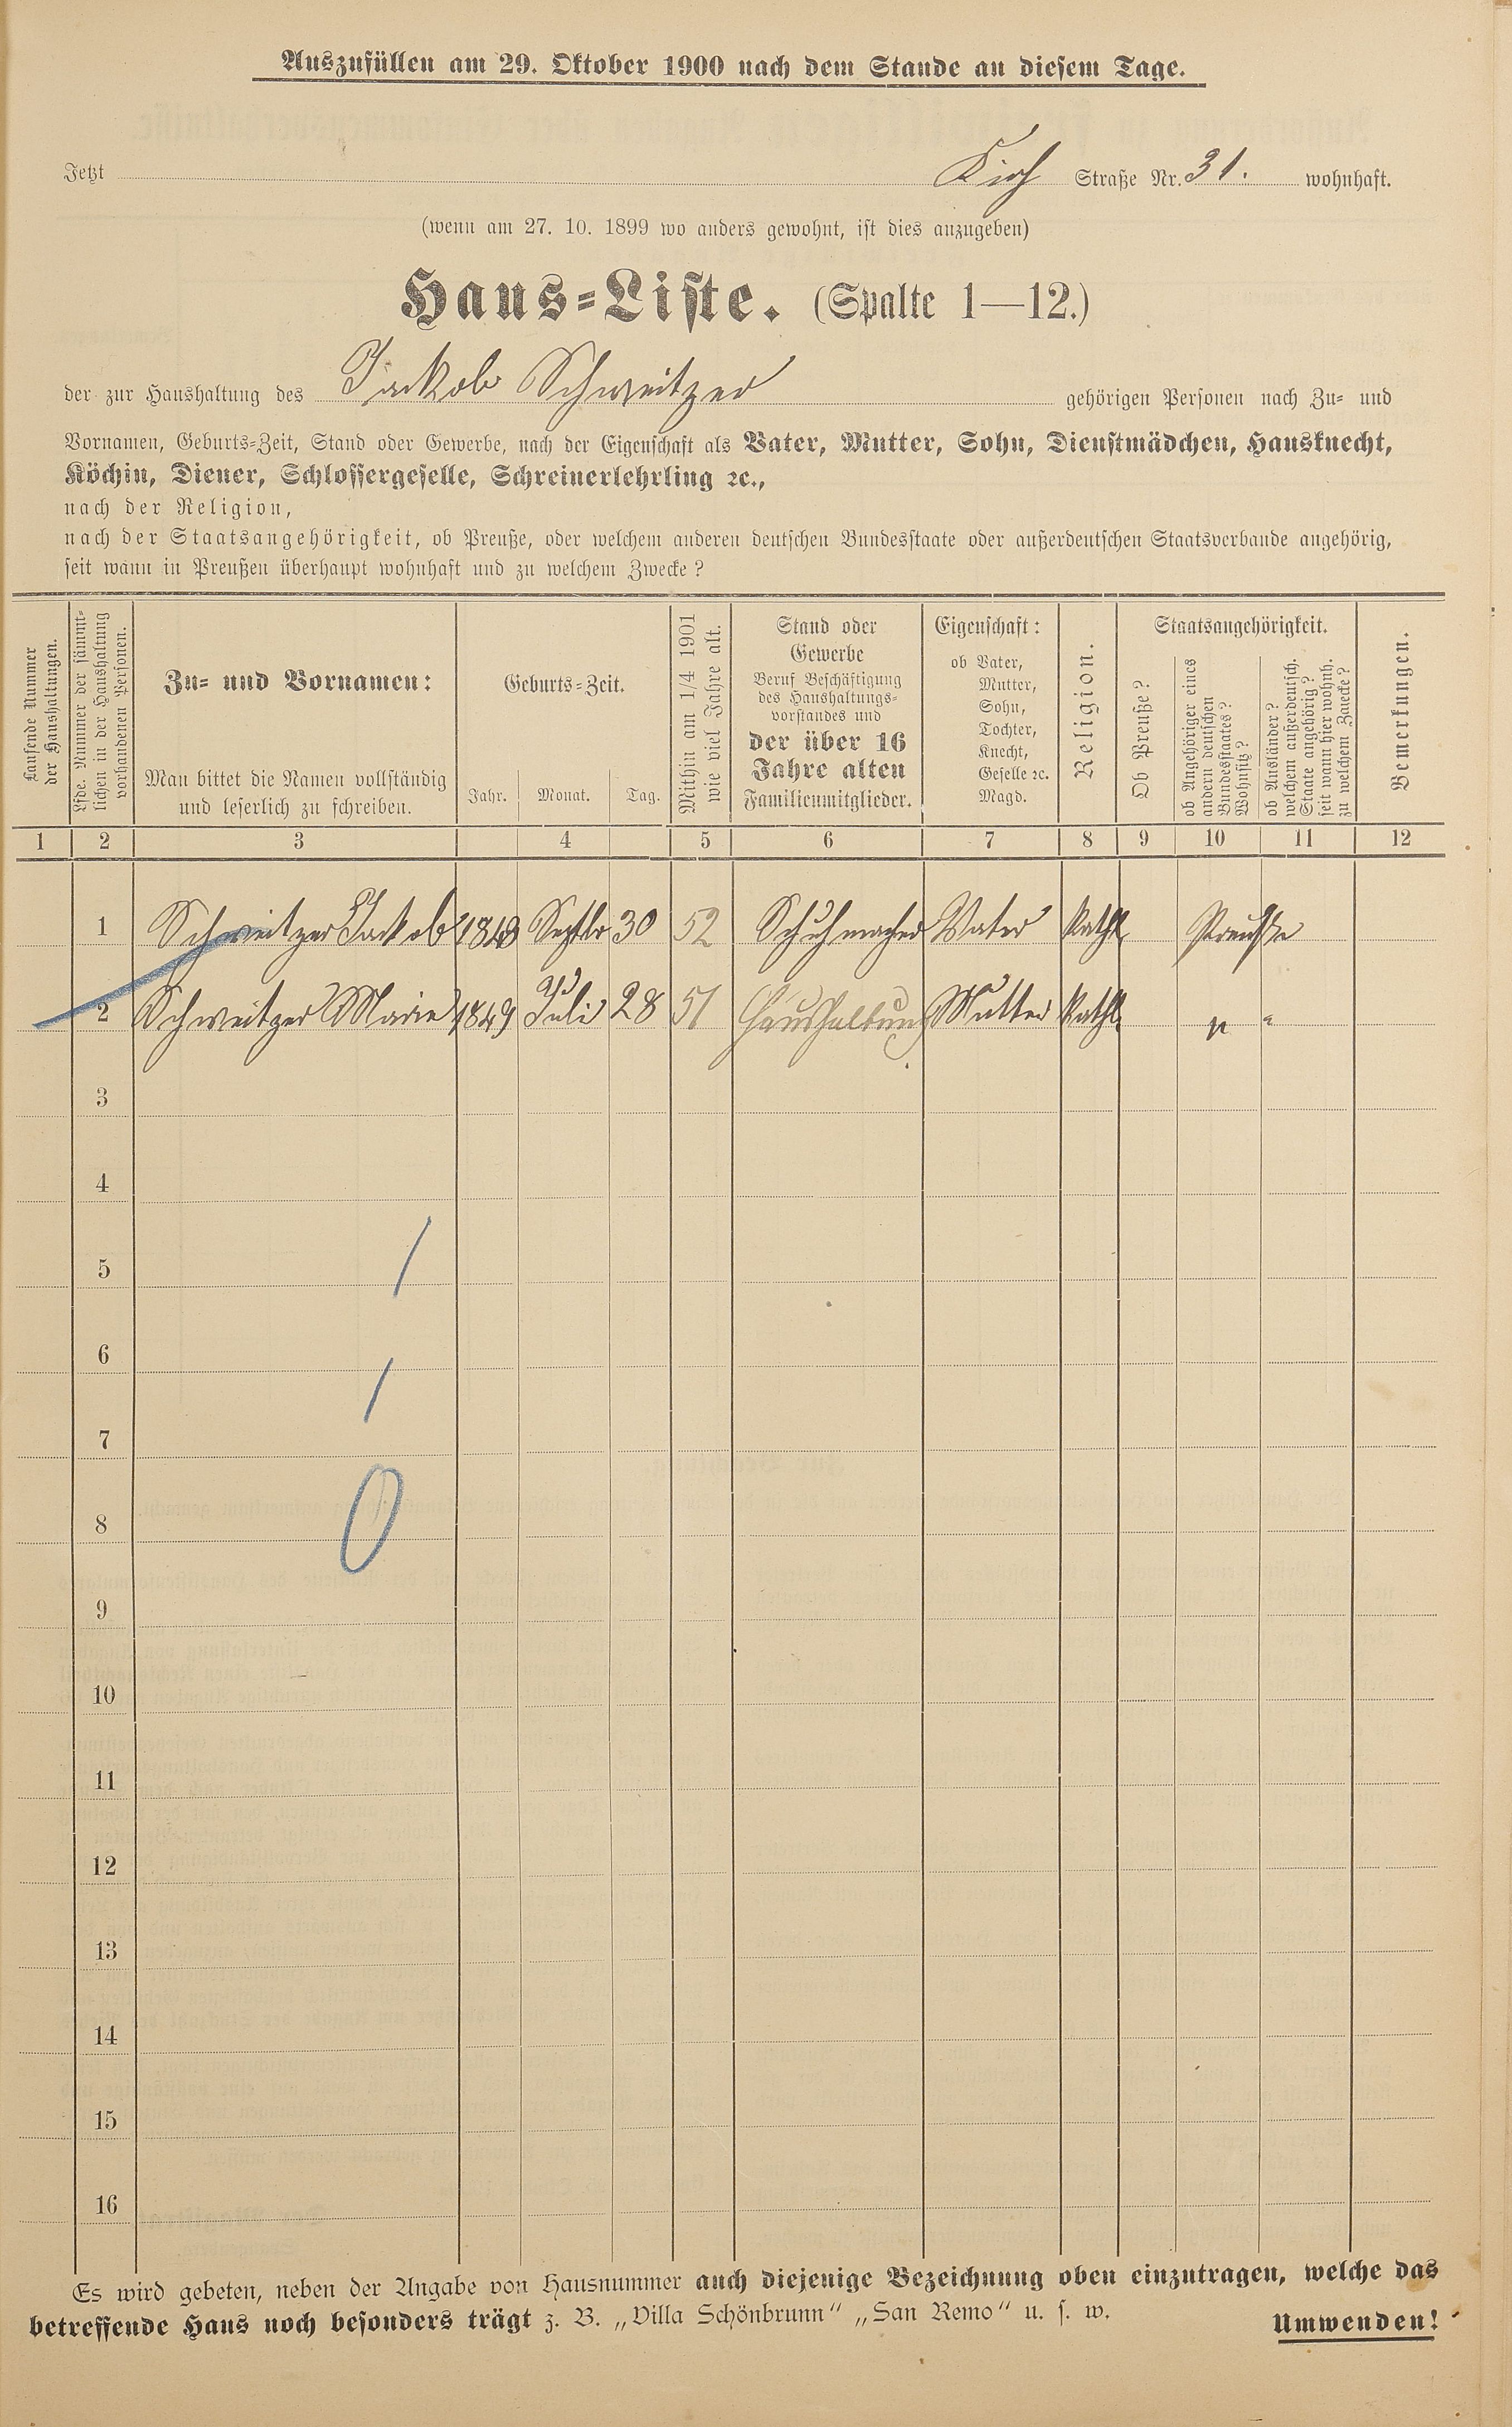 Auszufüllen am 29. Oktober 1900 nach dem Stande an diesem Tage.
Jetzt Kirch Straße Nr. 31. wohnhaft.
(wenn am 27. 10. 1899 wo anders gewohnt, ist dies anzugeben)
Haus-Liste. (Spalte 1—12.)
der zur Haushaltung des Jackob Schweitzer gehörigen Personen nach Zu- und
Vornamen, Geburts-Zeit, Stand oder Gewerbe, nach der Eigenschaft als Vater, Mutter, Sohn, Dienstmädchen, Hausknecht,
Köchin, Diener, Schlossergeselle, Schreinerlehrling ꝛc.,
nach der Religion,
nach der Staatsangehörigkeit, ob Preuße, oder welchem anderen deutschen Bundesstaate oder außerdeutschen Staatsverbande angehörig,
seit wann in Preußen überhaupt wohnhaft und zu welchem Zwecke?
Laufende Nummer
der Haushaltungen.
Lfde. Nummer der sämmt-
lichen in der Haushaltung
vorhandenen Personen.
Zu- und Vornamen:
Man bittet die Namen vollständig
und leserlich zu schreiben.
Geburts-Zeit.
Jahr. Monat. Tag.
Mithin am 1/4 1901
wie viel Jahre alt.
Stand oder
Gewerbe
Beruf Beschäftigung
des Haushaltungs-
vorstandes und
der über 16
Jahre alten
Familienmitglieder.
Eigenschaft:
ob Vater,
Mutter,
Sohn,
Tochter,
Knecht,
Geselle ꝛc.
Magd.
Religion.
Staatsangehörigkeit.
Ob Preuße?
ob Angehöriger eines
andern deutschen
Bundesstaates?
Wohnsitz?
ob Ausländer?
welchem außerdeutsch.
Staate angehörig?
seit wann hier wohnh.
zu welchem Zwecke?
Bemerkungen.
1 2 3 4 5 6 7 8 9 10 11 12
1 Schweitzer Jackob 1848 Septbr 30 52 Schuhmacher Vater Kathl. Preuße
2 Schweitzer Marie 1849 Juli 28 51 Haushaltung Mutter Kathl. " "
3
4
5
6
7
8
9
10
11
12
13
14
15
16
Es wird gebeten, neben der Angabe von Hausnummer auch diejenige Bezeichnung oben einzutragen, welche das
betreffende Haus noch besonders trägt z. B. „Villa Schönbrunn“ „San Remo“ u. s. w.
Umwenden!